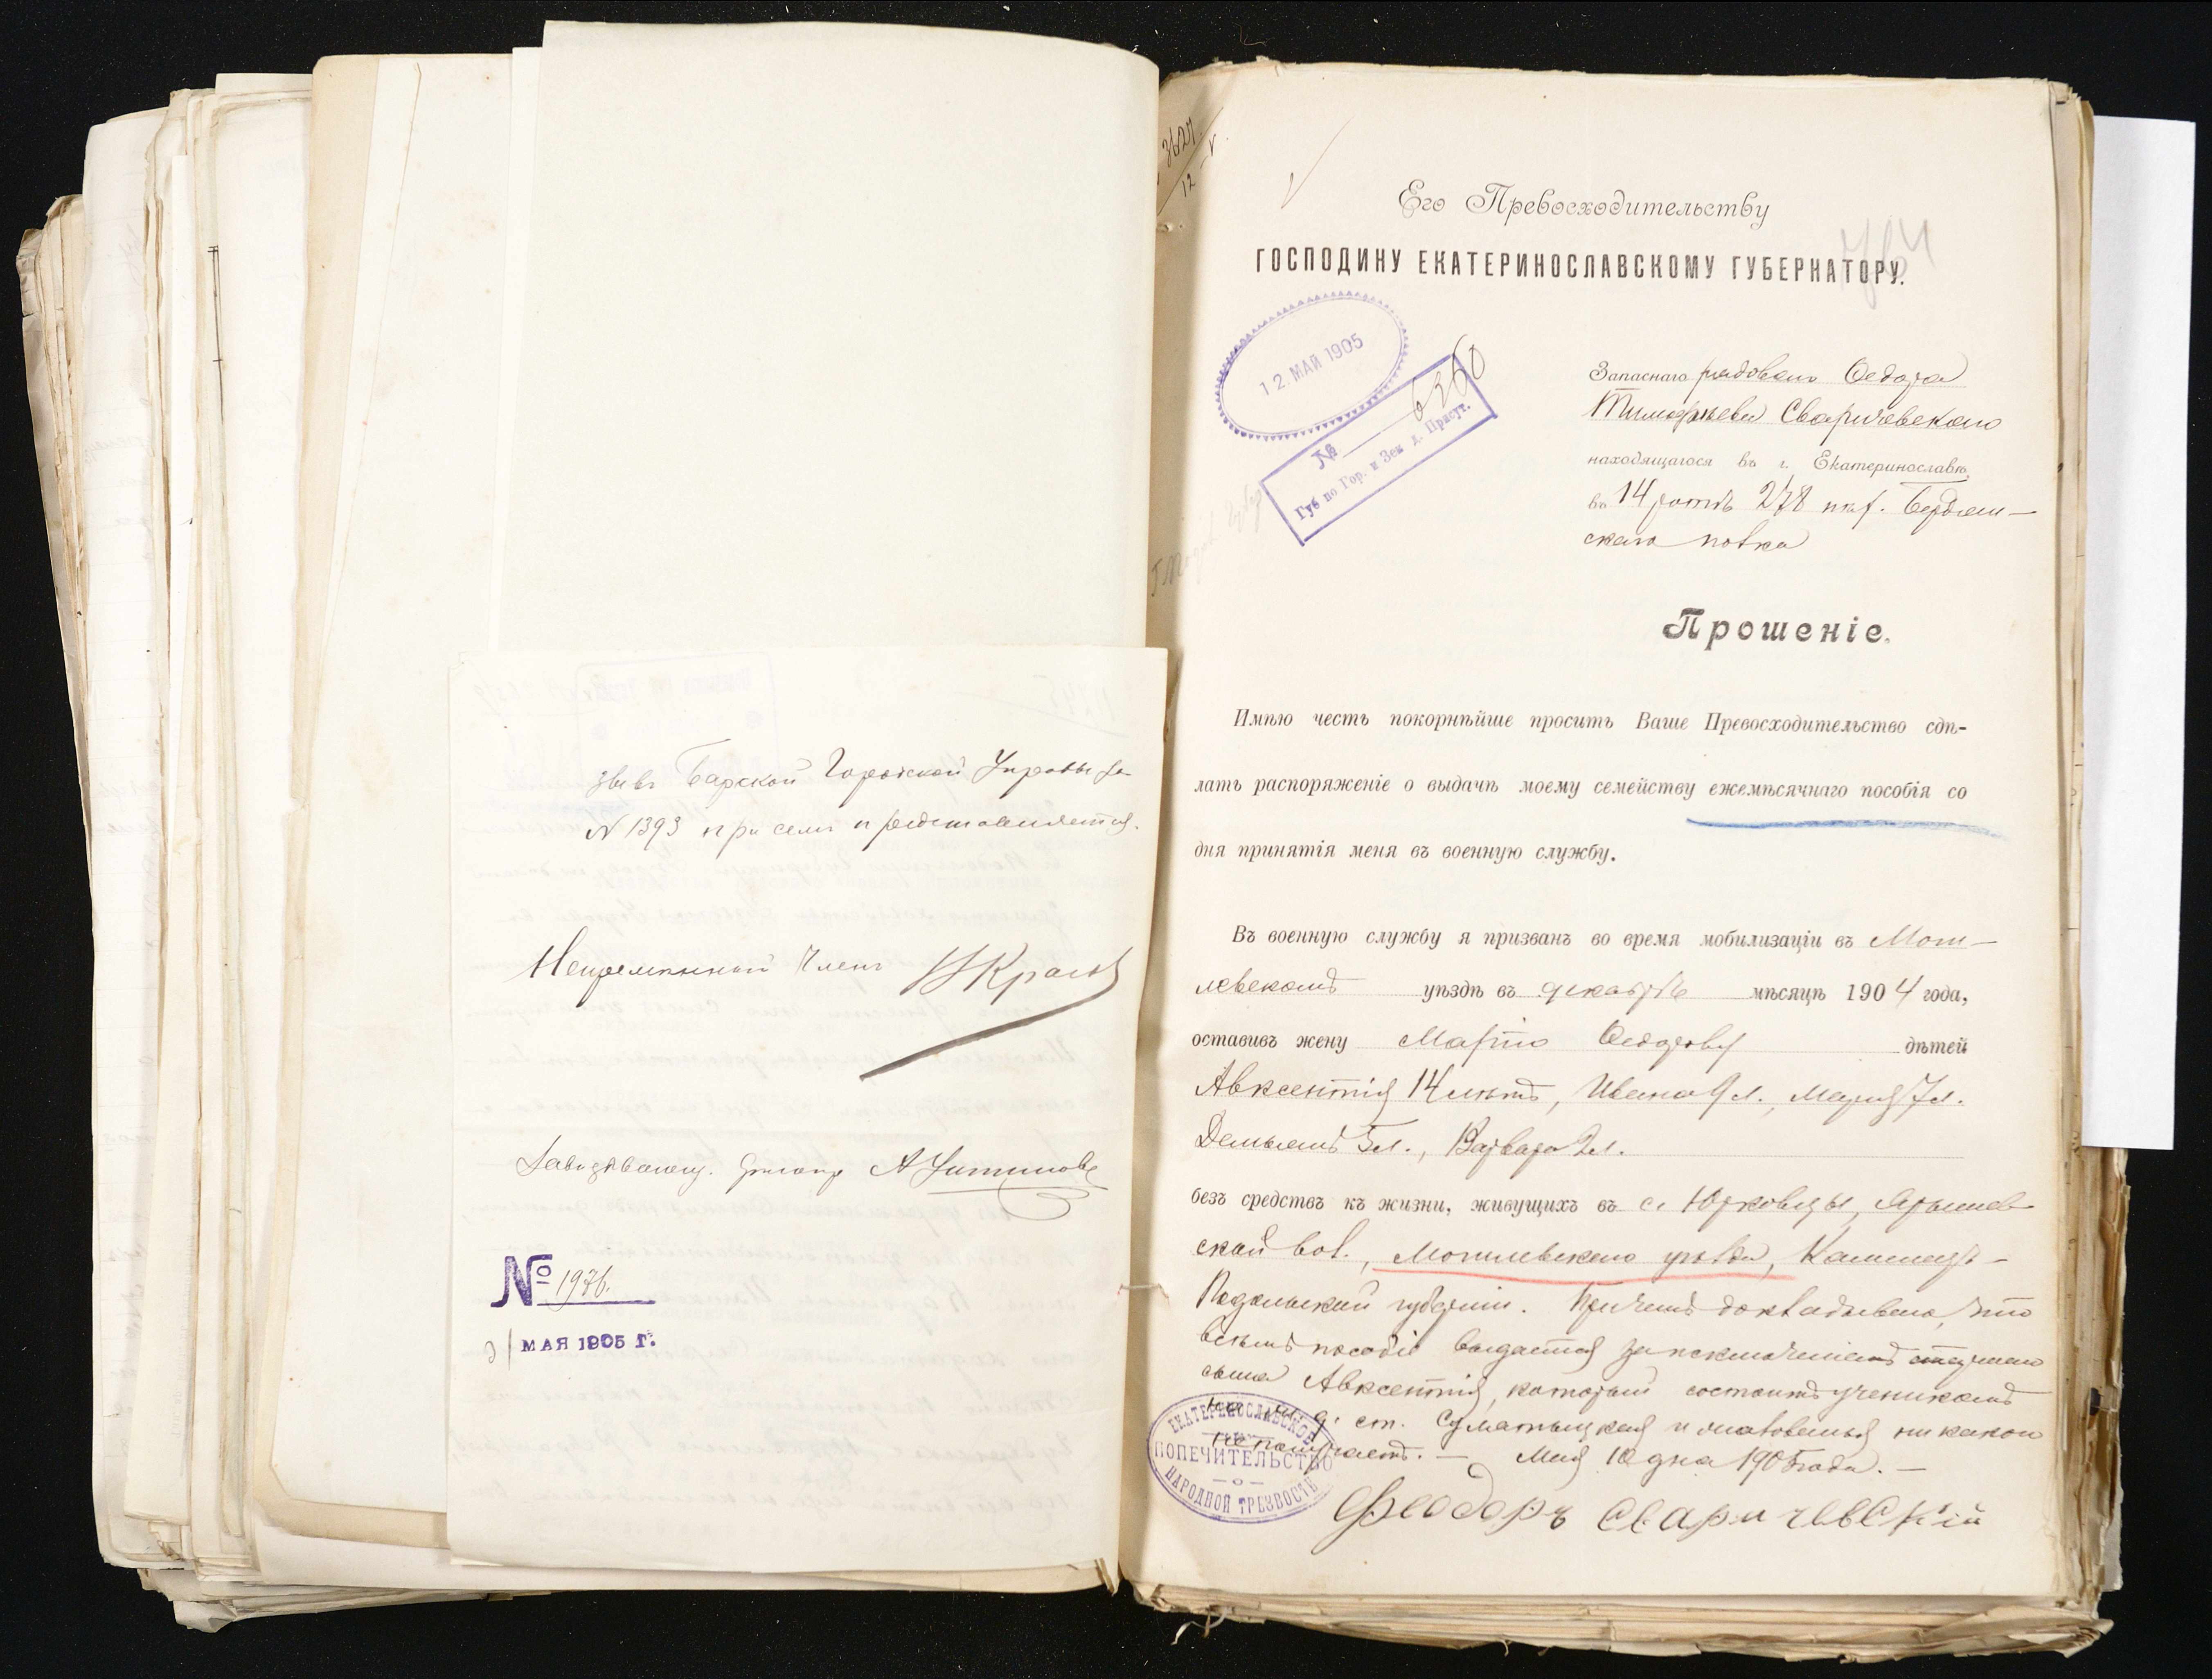 Барской Городской Управы за
№ 1393 при семъ представляется.
Непремѣнный Членъ
№ 1976.
МАЯ 1905 Г.
3627
12 V
Его Превосходительству
ГОСПОДИНУ ЕКАТЕРИНОСЛАВСКОМУ ГУБЕРНАТОРУ.
12. МАЙ 1905
№ 6360
Губ по Гор. и Зем д. Присут.
Запаснаго рядового Ѳедора
Тимофѣева Сваричевскаго
находящагося въ г. Екатеринославѣ
въ 14 ротѣ 278 пѣх. Бердян-
скаго полка
Прошеніе.
Имѣю честь покорнѣйше просить Ваше Превосходительство сдѣ-
лать распоряженіе о выдачѣ моему семейству ежемѣсячнаго пособія со
дня принятія меня въ военную службу.
Въ военную службу я призванъ во время мобилизаціи въ Моги-
левскомъ уѣздѣ въ декабрѣ мѣсяцѣ 1904 года,
оставивъ жену Марѳу Ѳедорову дѣтей
Авксентія 14 лѣтъ, Ивана 9 л., Марія 7 л.
Демьянъ 5 л., Варвара 2 л.
безъ средствъ къ жизни, живущихъ въ с. Юрковцы, Ярышев-
ской вол., Могилевскаго уѣзда, Каменецъ-
Подольской губерніи. Причемъ докладываю, что
всѣмъ пособіе выдается за исключеніемъ старшаго
сына Авксентія, который состоитъ ученикомъ
ст. и жалованья никакого
не получаетъ. — Мая 10 дня 1905 года. —
Феодоръ Сваричевскій
ЕКАТЕРИНОСЛАВСКОЕ
ПОПЕЧИТЕЛЬСТВО
О
НАРОДНОЙ ТРЕЗВОСТИ